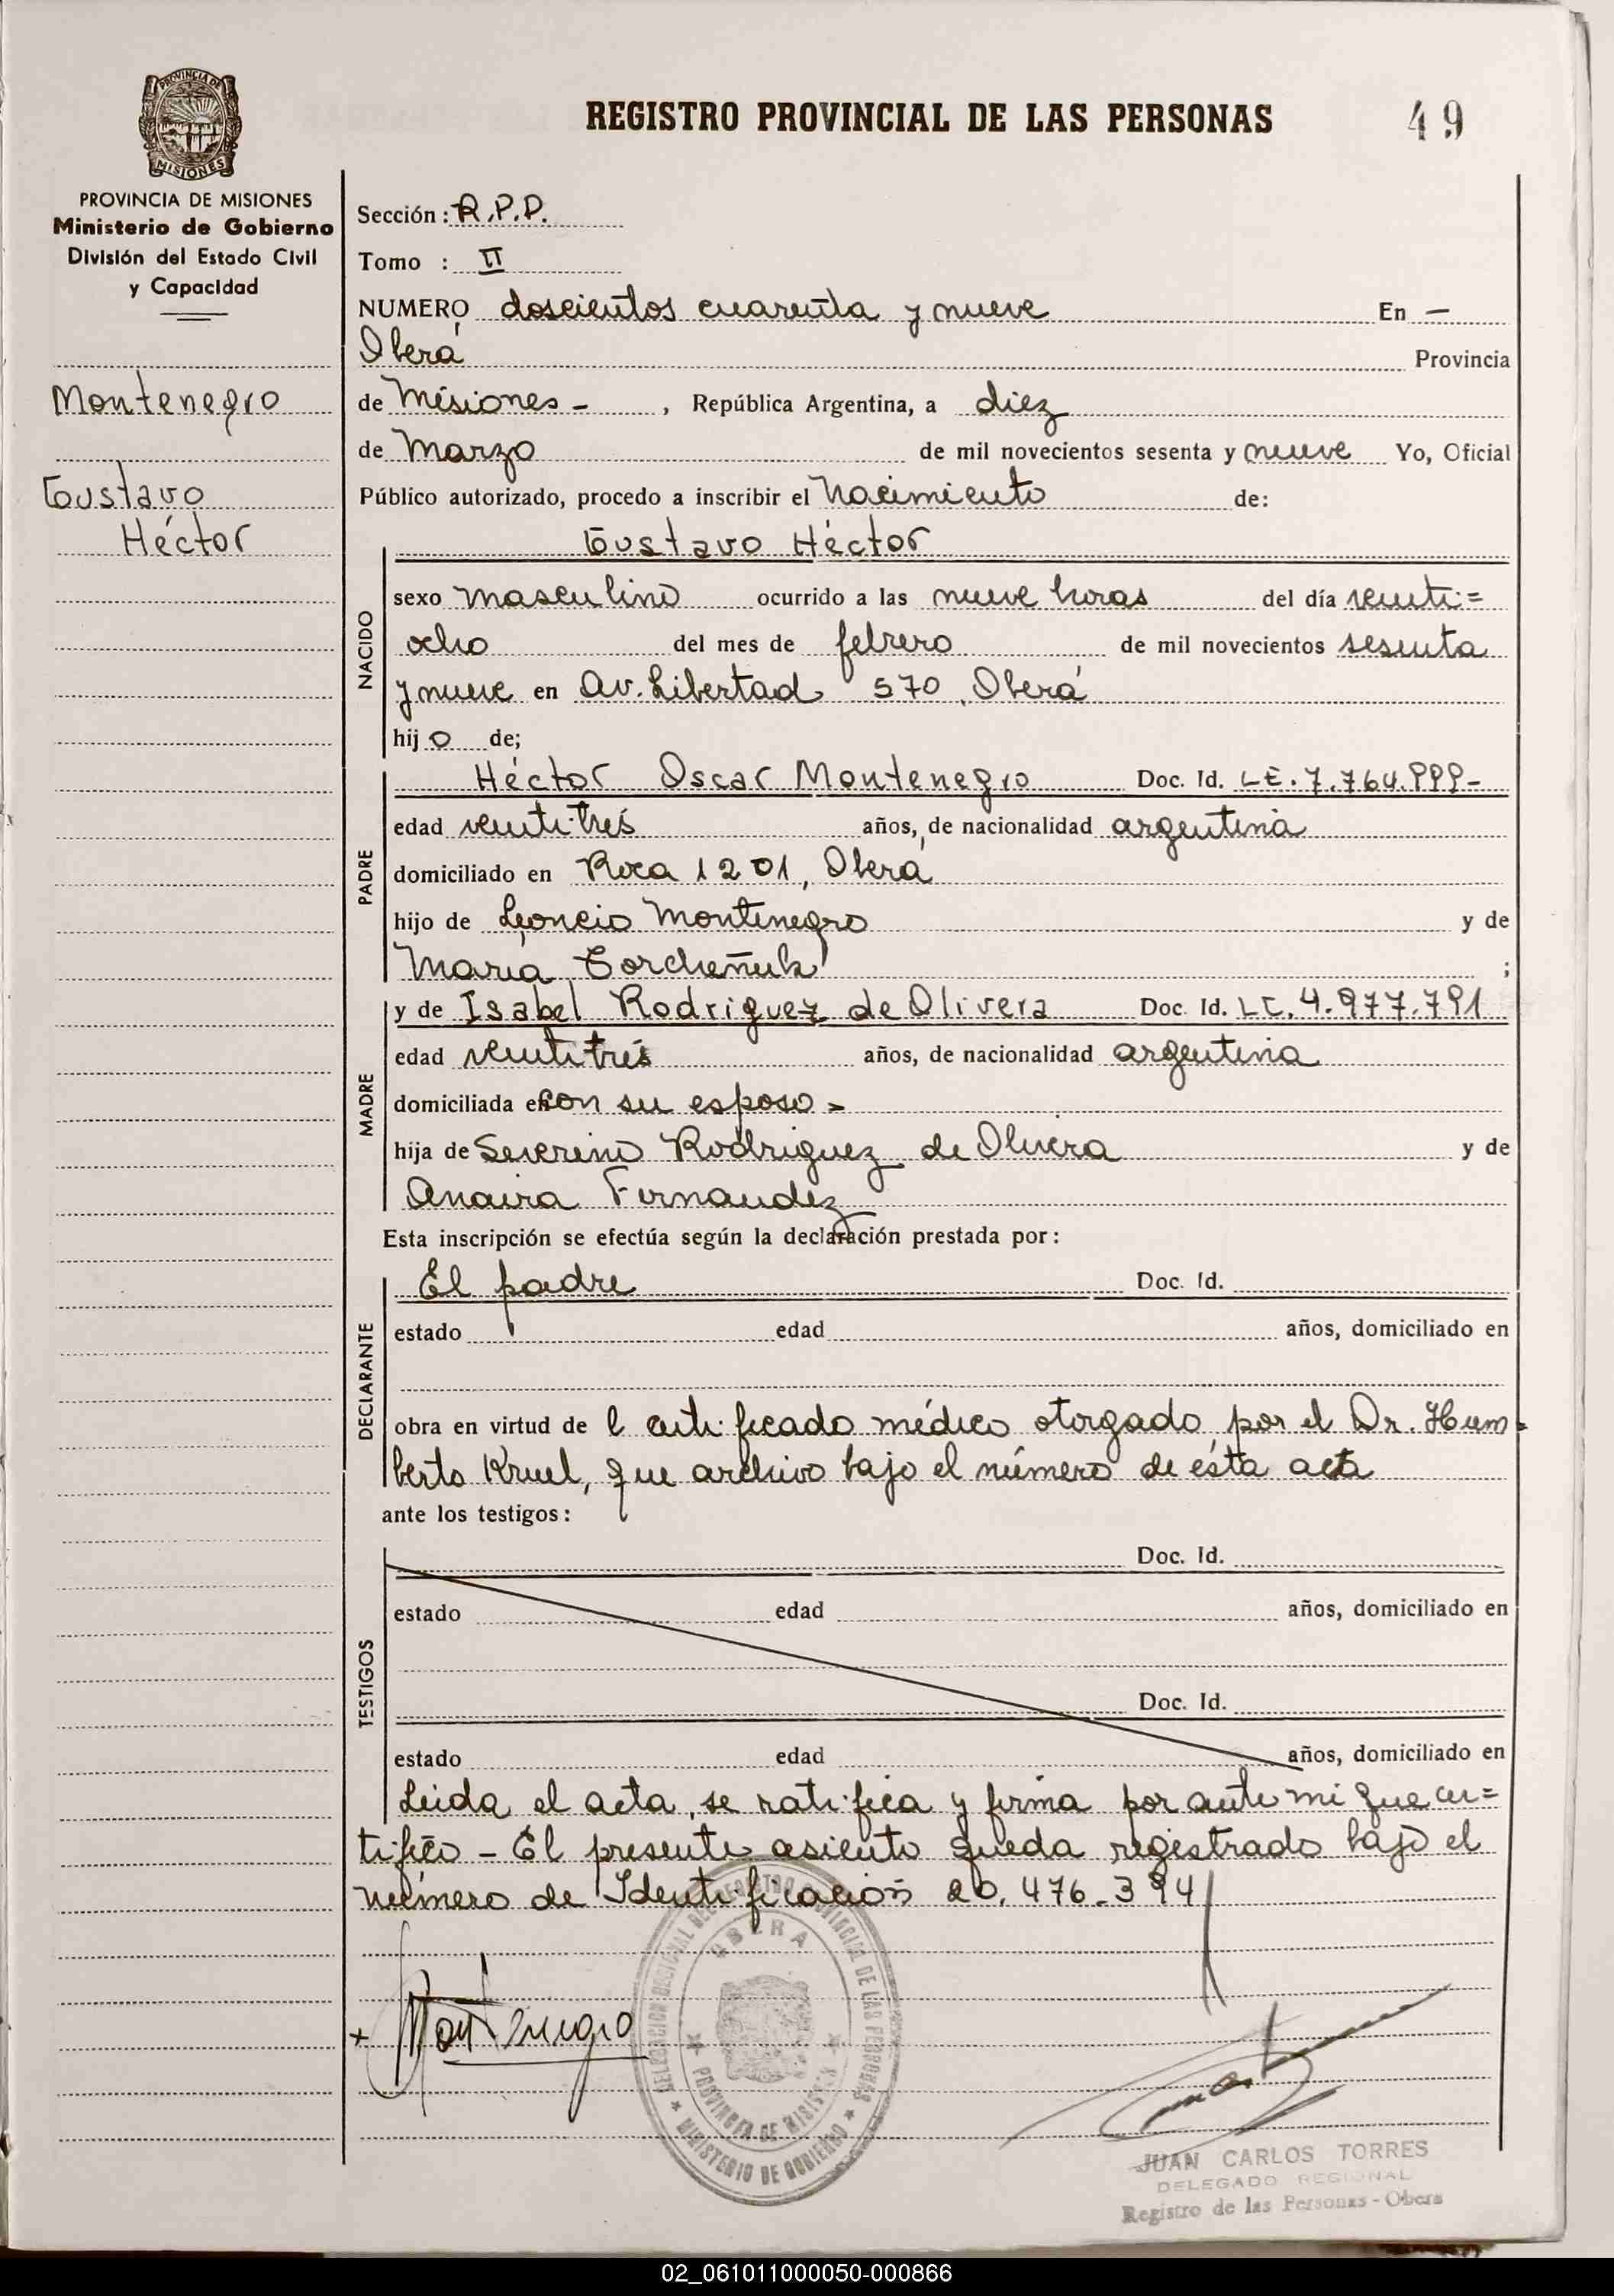 PROVINCIA DE
MISIONES
REGISTRO PROVINCIAL DE LAS PERSONAS 49
PROVINCIA DE MISIONES
Ministerio de Gobierno
División del Estado Civil
y Capacidad
Montenegro
Gustavo
Héctor
Sección: R.P.P.
Tomo : II
NUMERO doscientos cuarenta y nueve En —
Oberá Provincia
de Misiones - , República Argentina, a diez
de Marzo de mil novecientos sesenta y nueve Yo, Oficial
Público autorizado, procedo a inscribir el Nacimiento de:
Gustavo Héctor
NACIDO
sexo masculino ocurrido a las nueve horas del día veinti=
ocho del mes de febrero de mil novecientos sesenta
y nueve en Av. Libertad 570, Oberá
hijo de;
PADRE
Héctor Oscar Montenegro Doc. Id. LE. 7.764.999-
edad veintitrés años, de nacionalidad argentina
domiciliado en Roca 1201, Oberá
hijo de Leoncio Montenegro y de
Maria ;
MADRE
y de Isabel Rodriguez de Olivera Doc. Id. LC. 4.977.791
edad veintitrés años, de nacionalidad argentina
domiciliada en con su esposo -
hija de Severino Rodriguez de Olivera y de
Anaira Fernandez
Esta inscripción se efectúa según la declaración prestada por:
DECLARANTE
El padre Doc. Id.
estado edad años, domiciliado en
obra en virtud de l certificado médico otorgado por el Dr. Hum-
berto Kruel, que archivo bajo el número de ésta acta
ante los testigos:
TESTIGOS
Doc. Id.
estado edad años, domiciliado en
Doc. Id.
estado edad años, domiciliado en
Leida el acta, se ratifica y firma por ante mi que cer=
tifico - El presente asiento queda registrado bajo el
número de Identificación 20.476.394
Montenegro
DELEGACION REGIONAL DEL REGISTRO PROVINCIAL DE LAS PERSONAS
OBERA
PROVINCIA DE MISIONES
MINISTERIO DE GOBIERNO
JUAN CARLOS TORRES
DELEGADO REGIONAL
Registro de las Personas - Obera
02_061011000050-000866